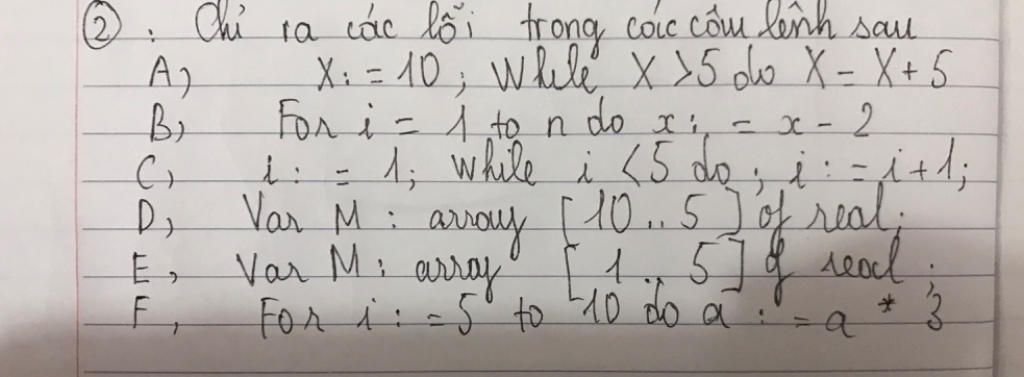 ②. Chỉ ra các lỗi trong các câu lệnh sau
A) X:=10; While X>5 do X=X+5
B) For i = 1 to n do x:=x-2
C) i:=1; While i<5 do; i:=i+1;
D, Var M: array [10..5] of real;
E, Var M: array [1..5] of real;
F, For i:=5 to 10 do a:=a*3